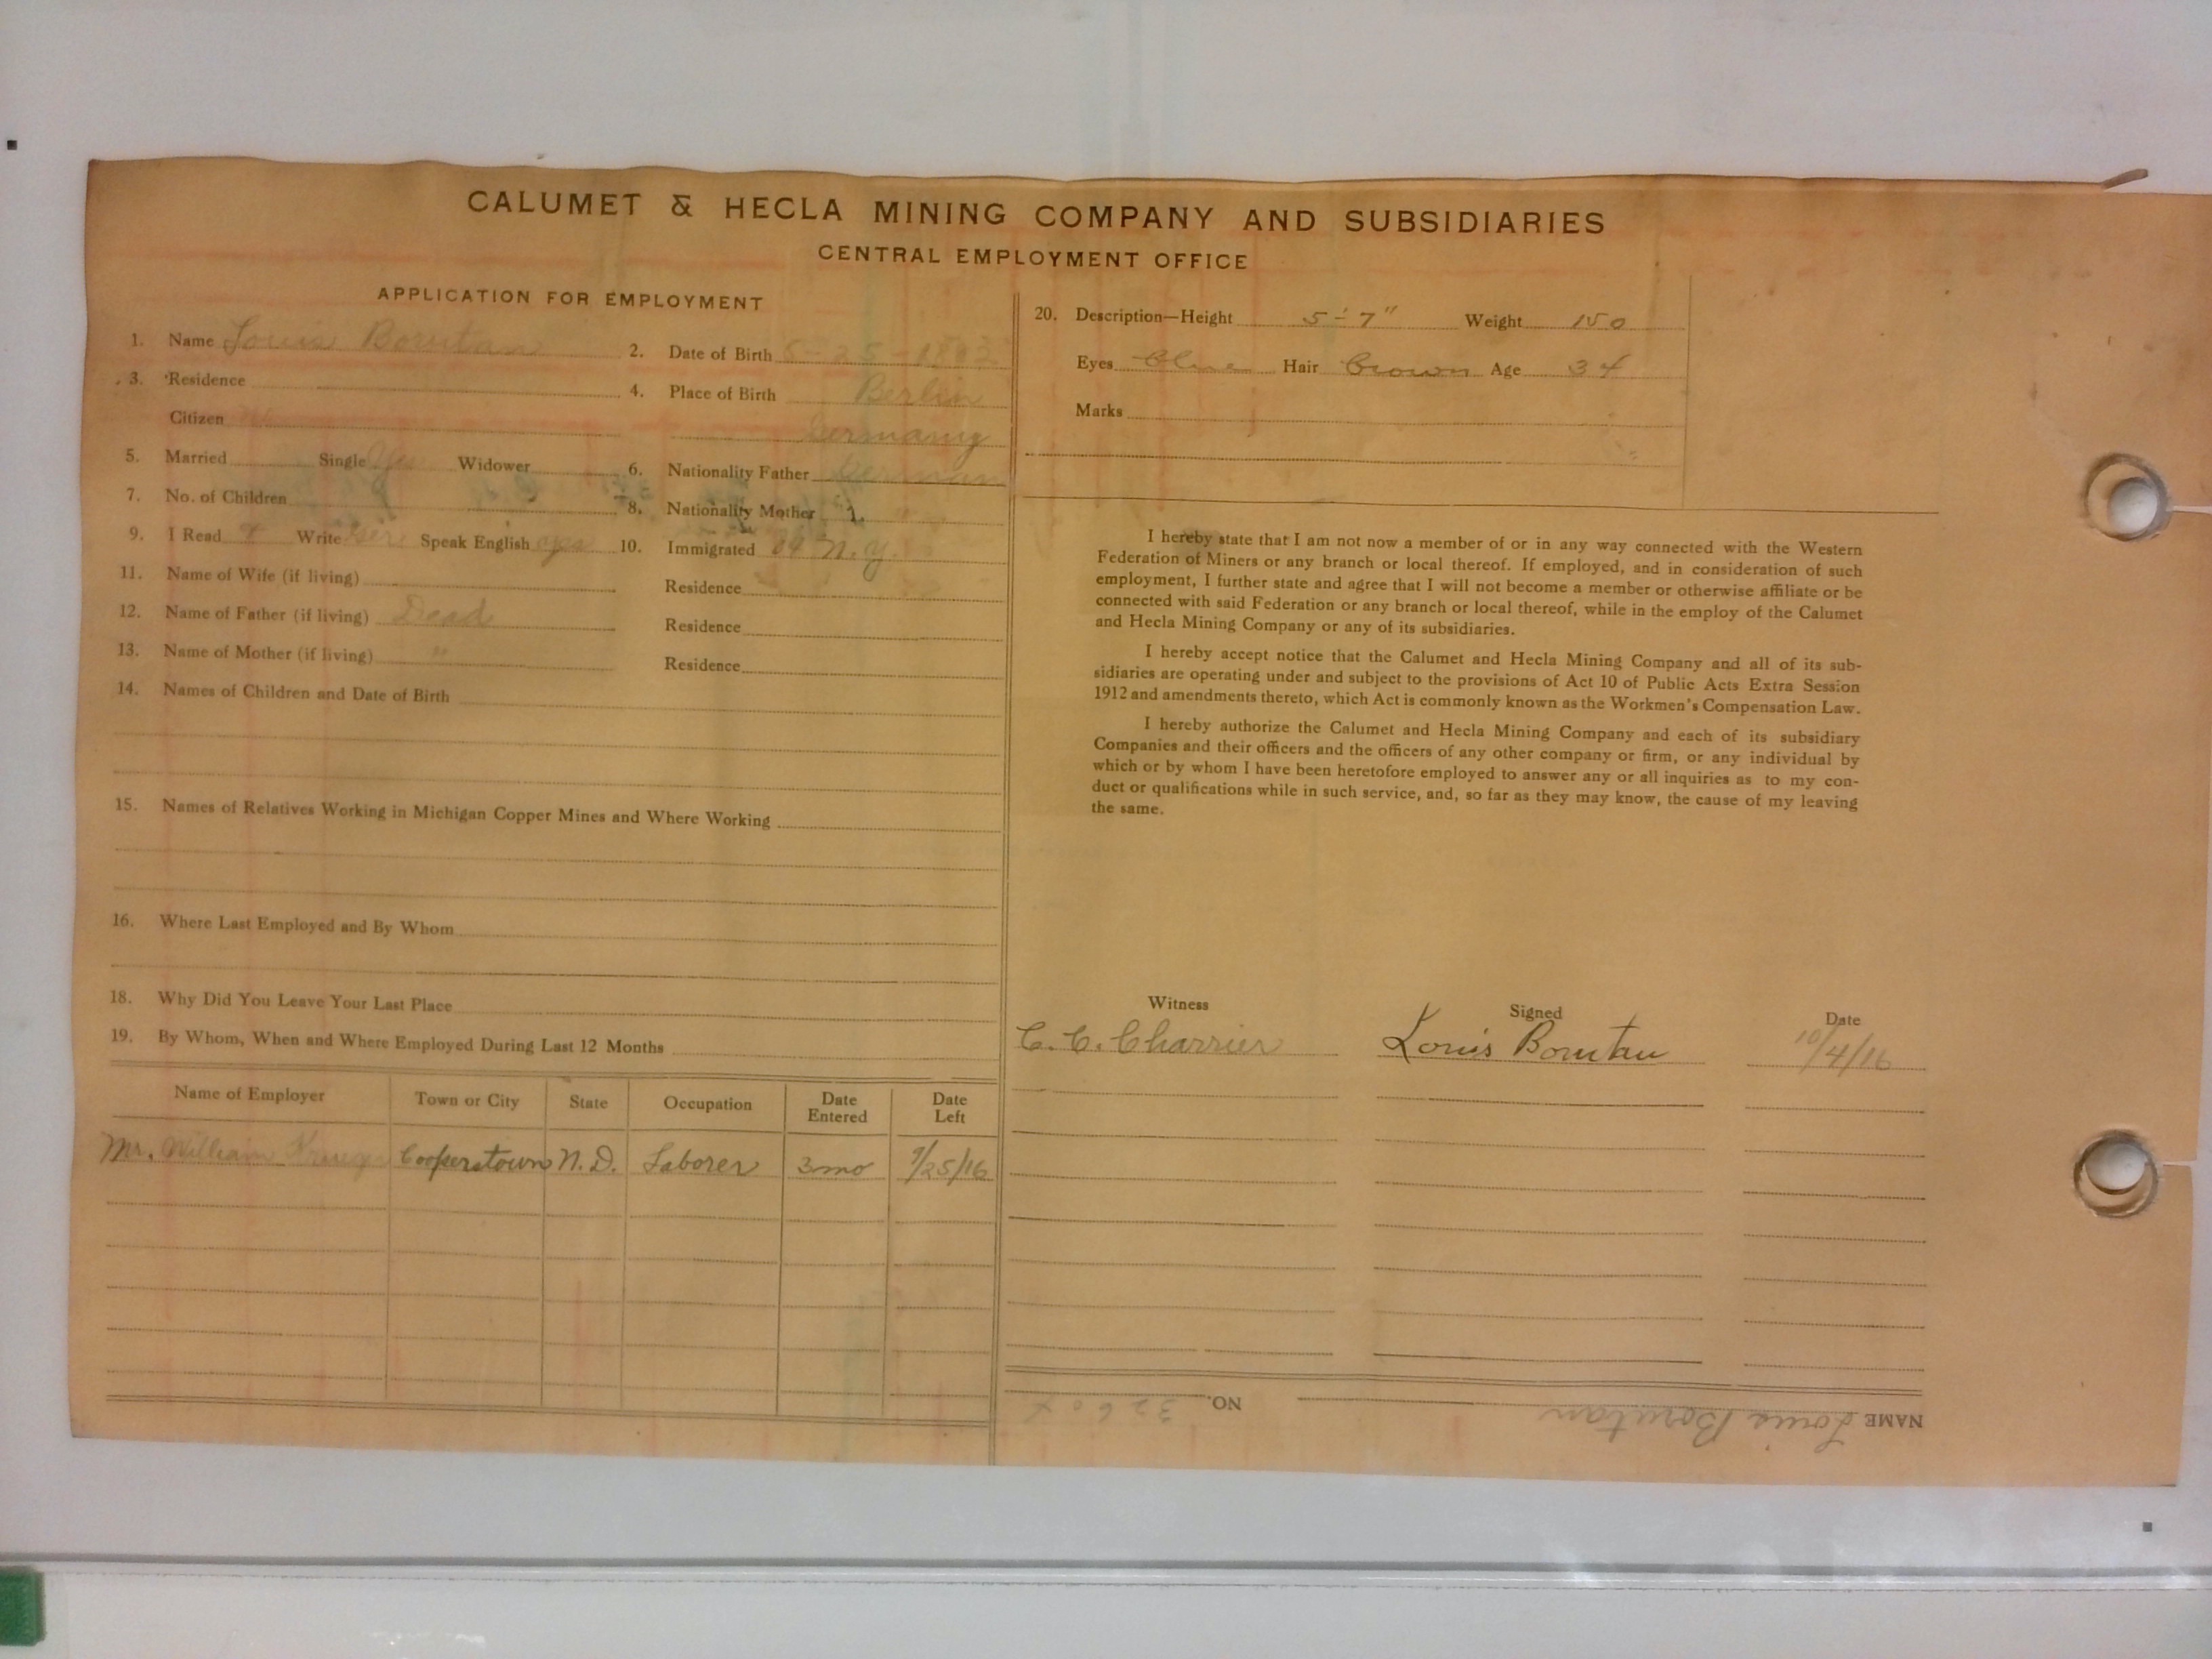 CALUMET & HECLA MINING COMPANY AND SUBSIDIARIES
CENTRAL EMPLOYMENT OFFICE
APPLICATION FOR EMPLOYMENT
1. Name Louis Borutau 2. Date of Birth 5-25-1882
3. Residence 4. Place of Birth Berlin
Citizen no Germany
5. Married Single Yes Widower 6. Nationality Father German
7. No. of Children 8. Nationality Mother "
9. I Read & Write Ger Speak English yes 10. Immigrated 04 N.Y.
11. Name of Wife (if living) Residence
12. Name of Father (if living) Dead Residence
13. Name of Mother (if living) " Residence
14. Names of Children and Date of Birth
15. Names of Relatives Working in Michigan Copper Mines and Where Working
16. Where Last Employed and By Whom
18. Why Did You Leave Your Last Place
19. By Whom, When and Where Employed During Last 12 Months
Name of Employer Town or City State Occupation Date Entered Date Left
Mr. William Krueger Cooperstown N.D. Laborer 3 mo 9/25/16
20. Description—Height 5'-7" Weight 150
Eyes Hair Brown Age 34
Marks
I hereby state that I am not now a member of or in any way connected with the Western
Federation of Miners or any branch or local thereof. If employed, and in consideration of such
employment, I further state and agree that I will not become a member or otherwise affiliate or be
connected with said Federation or any branch or local thereof, while in the employ of the Calumet
and Hecla Mining Company or any of its subsidiaries.
I hereby accept notice that the Calumet and Hecla Mining Company and all of its sub-
sidiaries are operating under and subject to the provisions of Act 10 of Public Acts Extra Session
1912 and amendments thereto, which Act is commonly known as the Workmen's Compensation Law.
I hereby authorize the Calumet and Hecla Mining Company and each of its subsidiary
Companies and their officers and the officers of any other company or firm, or any individual by
which or by whom I have been heretofore employed to answer any or all inquiries as to my con-
duct or qualifications while in such service, and, so far as they may know, the cause of my leaving
the same.
Witness Signed Date
C. C. Charrier Louis Borutau 10/4/16
NAME Louis Borutau NO.